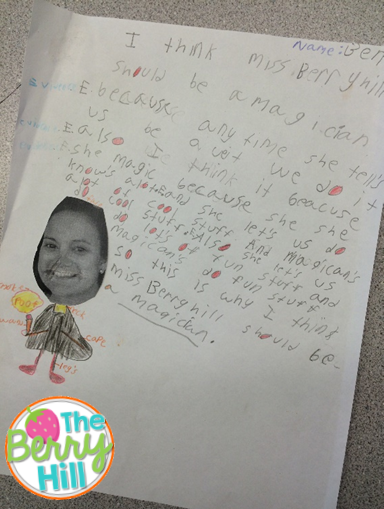 Name: Ben
I think miss.Berryhill
should be a magician
E.because any time she tell's
us be a vot we do it
E also I think it beacuse
she magic because she she
know's a lot. and she let's us do
a lot of cool stuff. And magican's
do cool stuff. Also she let's us
do lot's of fun stuff and
magican's do fun stuff
so this is why I think
miss Berryhill should be
a magician.
root
cape
leg's
The
Berry
Hill